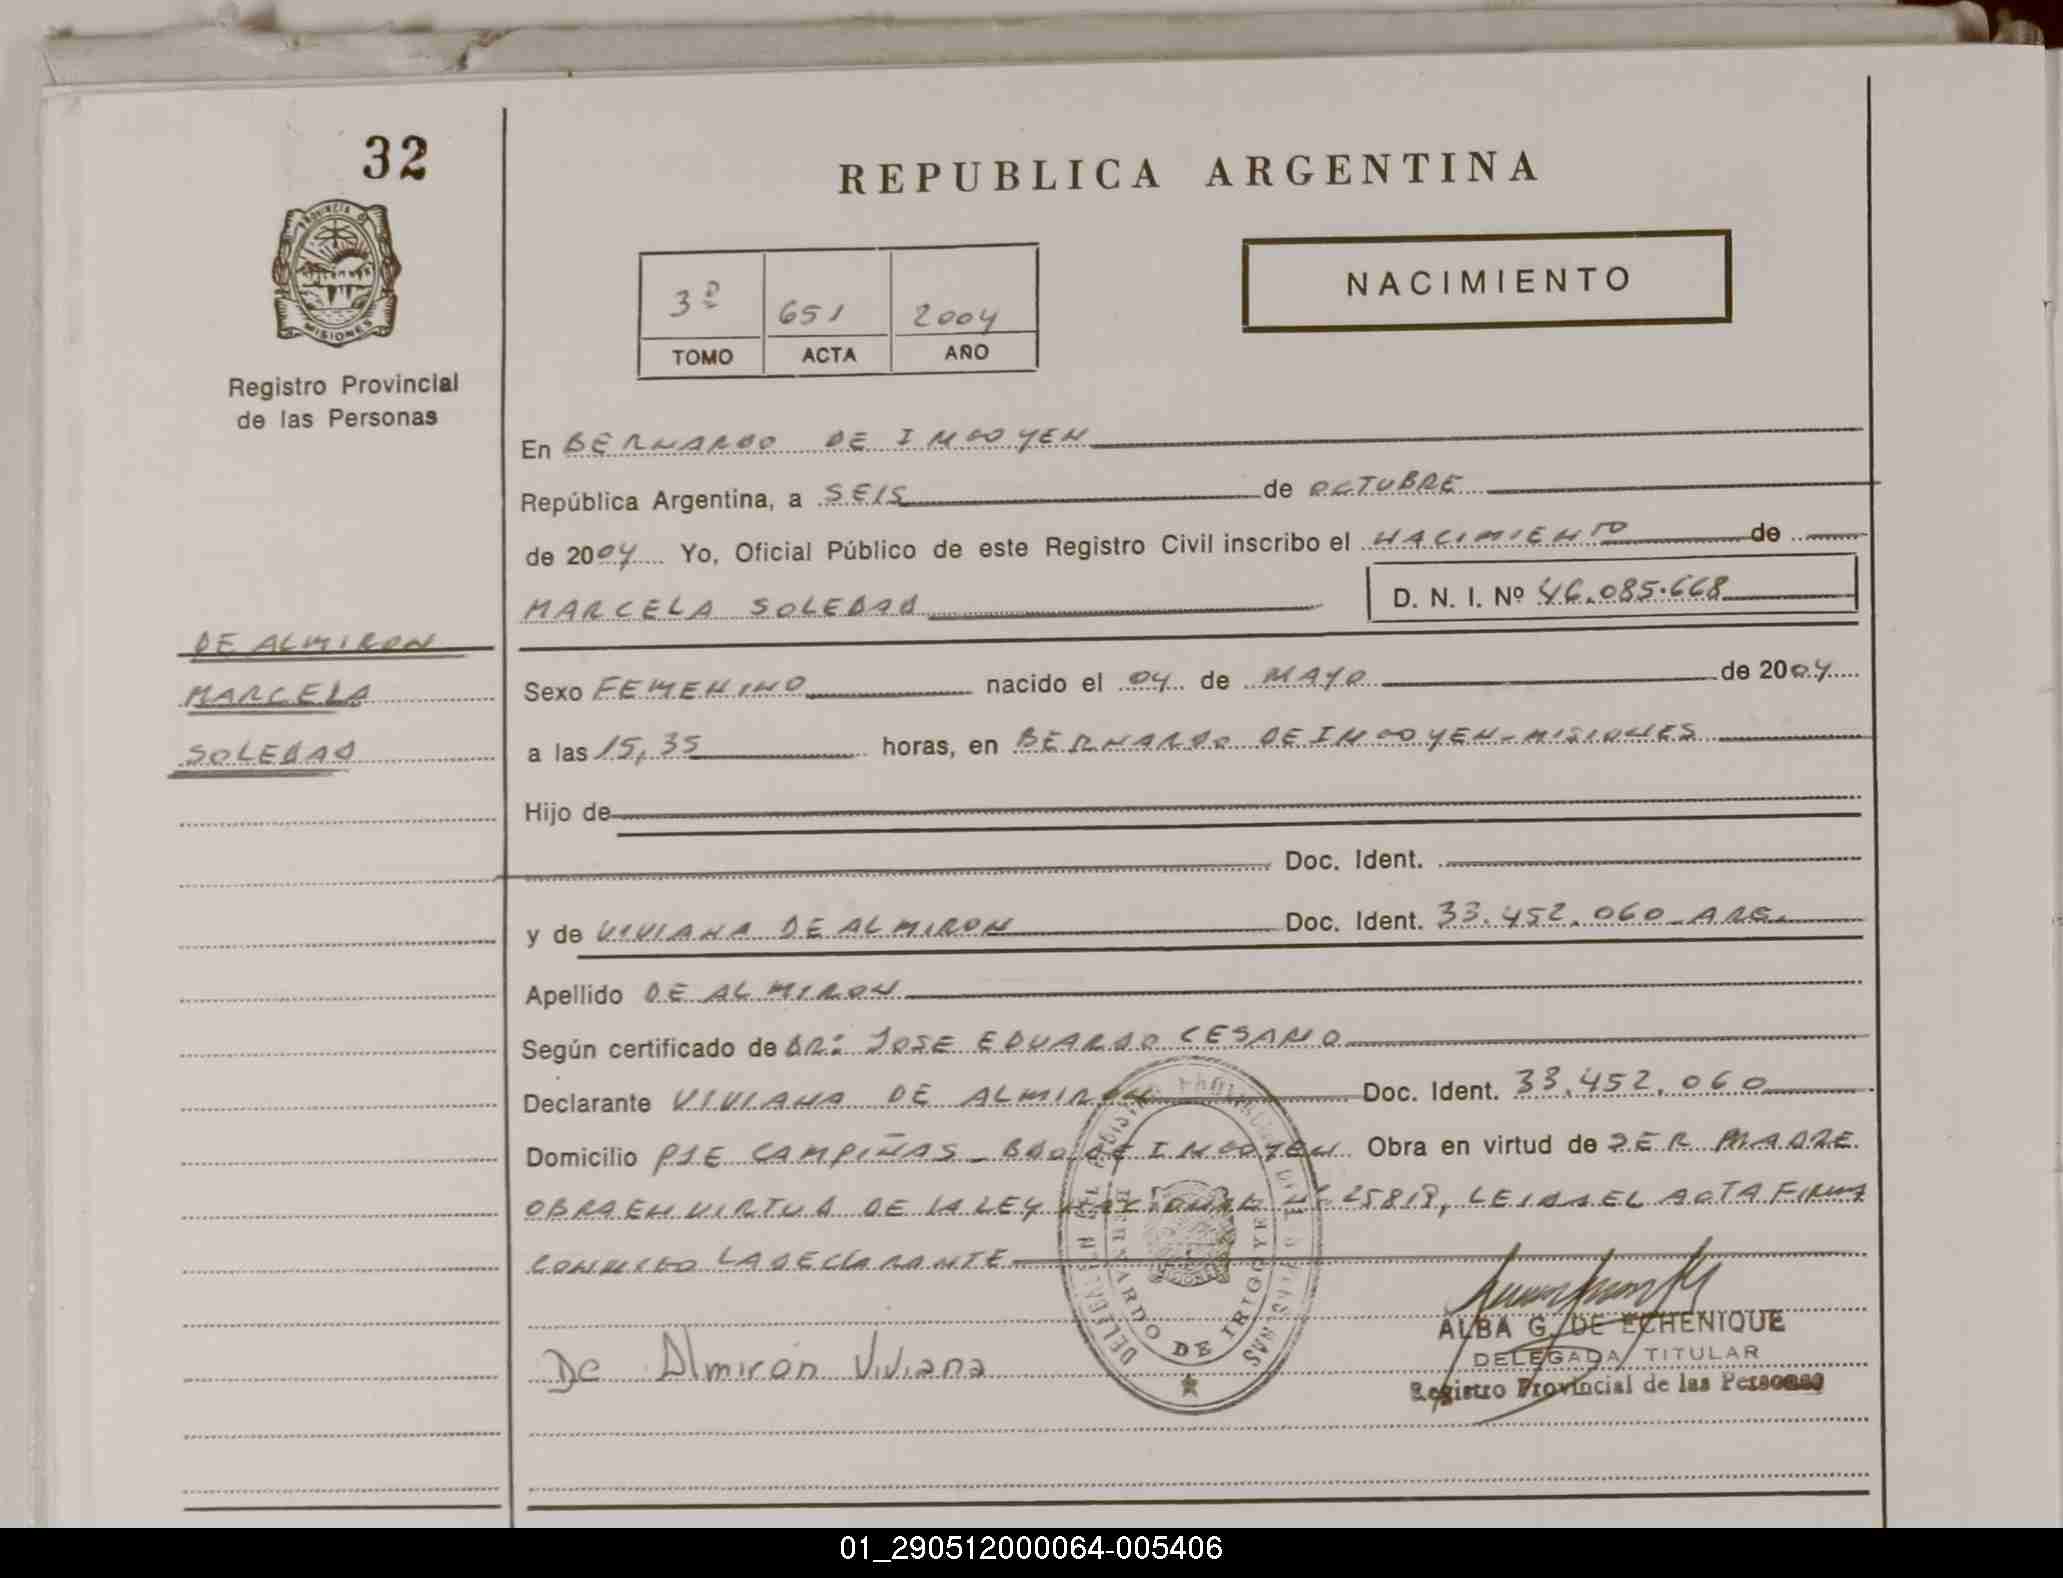 32
REPUBLICA ARGENTINA
PROVINCIA DE MISIONES
Registro Provincial
de las Personas
NACIMIENTO
3º 651 2004
TOMO ACTA AÑO
En BERNARDO DE IRIGOYEN
República Argentina, a SEIS de OCTUBRE
de 2004 Yo, Oficial Público de este Registro Civil inscribo el NACIMIENTO de
MARCELA SOLEDAD D. N. I. Nº 46.085.668
DE ALMIRON
MARCELA
SOLEDAD
Sexo FEMENINO nacido el 04 de MAYO de 2004
a las 15,35 horas, en BERNARDO DE IRIGOYEN-MISIONES
Hijo de
Doc. Ident.
y de VIVIANA DE ALMIRON Doc. Ident. 33.452.060 ARG.
Apellido DE ALMIRON
Según certificado de DR: JOSE EDUARDO CESANO
Declarante VIVIANA DE ALMIRON Doc. Ident. 33.452.060
Domicilio PJE CAMPIÑAS - BDO DE IRIGOYEN Obra en virtud de SER MADRE.
OBRA EN VIRTUD DE LA LEY NACIONAL Nº 25819, LEIDA EL ACTA FIRMA
CONMIGO LA DECLARANTE
De Almirón Viviana
DELEGACION DEL REGISTRO PROVINCIAL DE LAS PERSONAS
BERNARDO DE IRIGOYEN
ALBA G. DE ECHENIQUE
DELEGADA TITULAR
Registro Provincial de las Personas
01_290512000064-005406